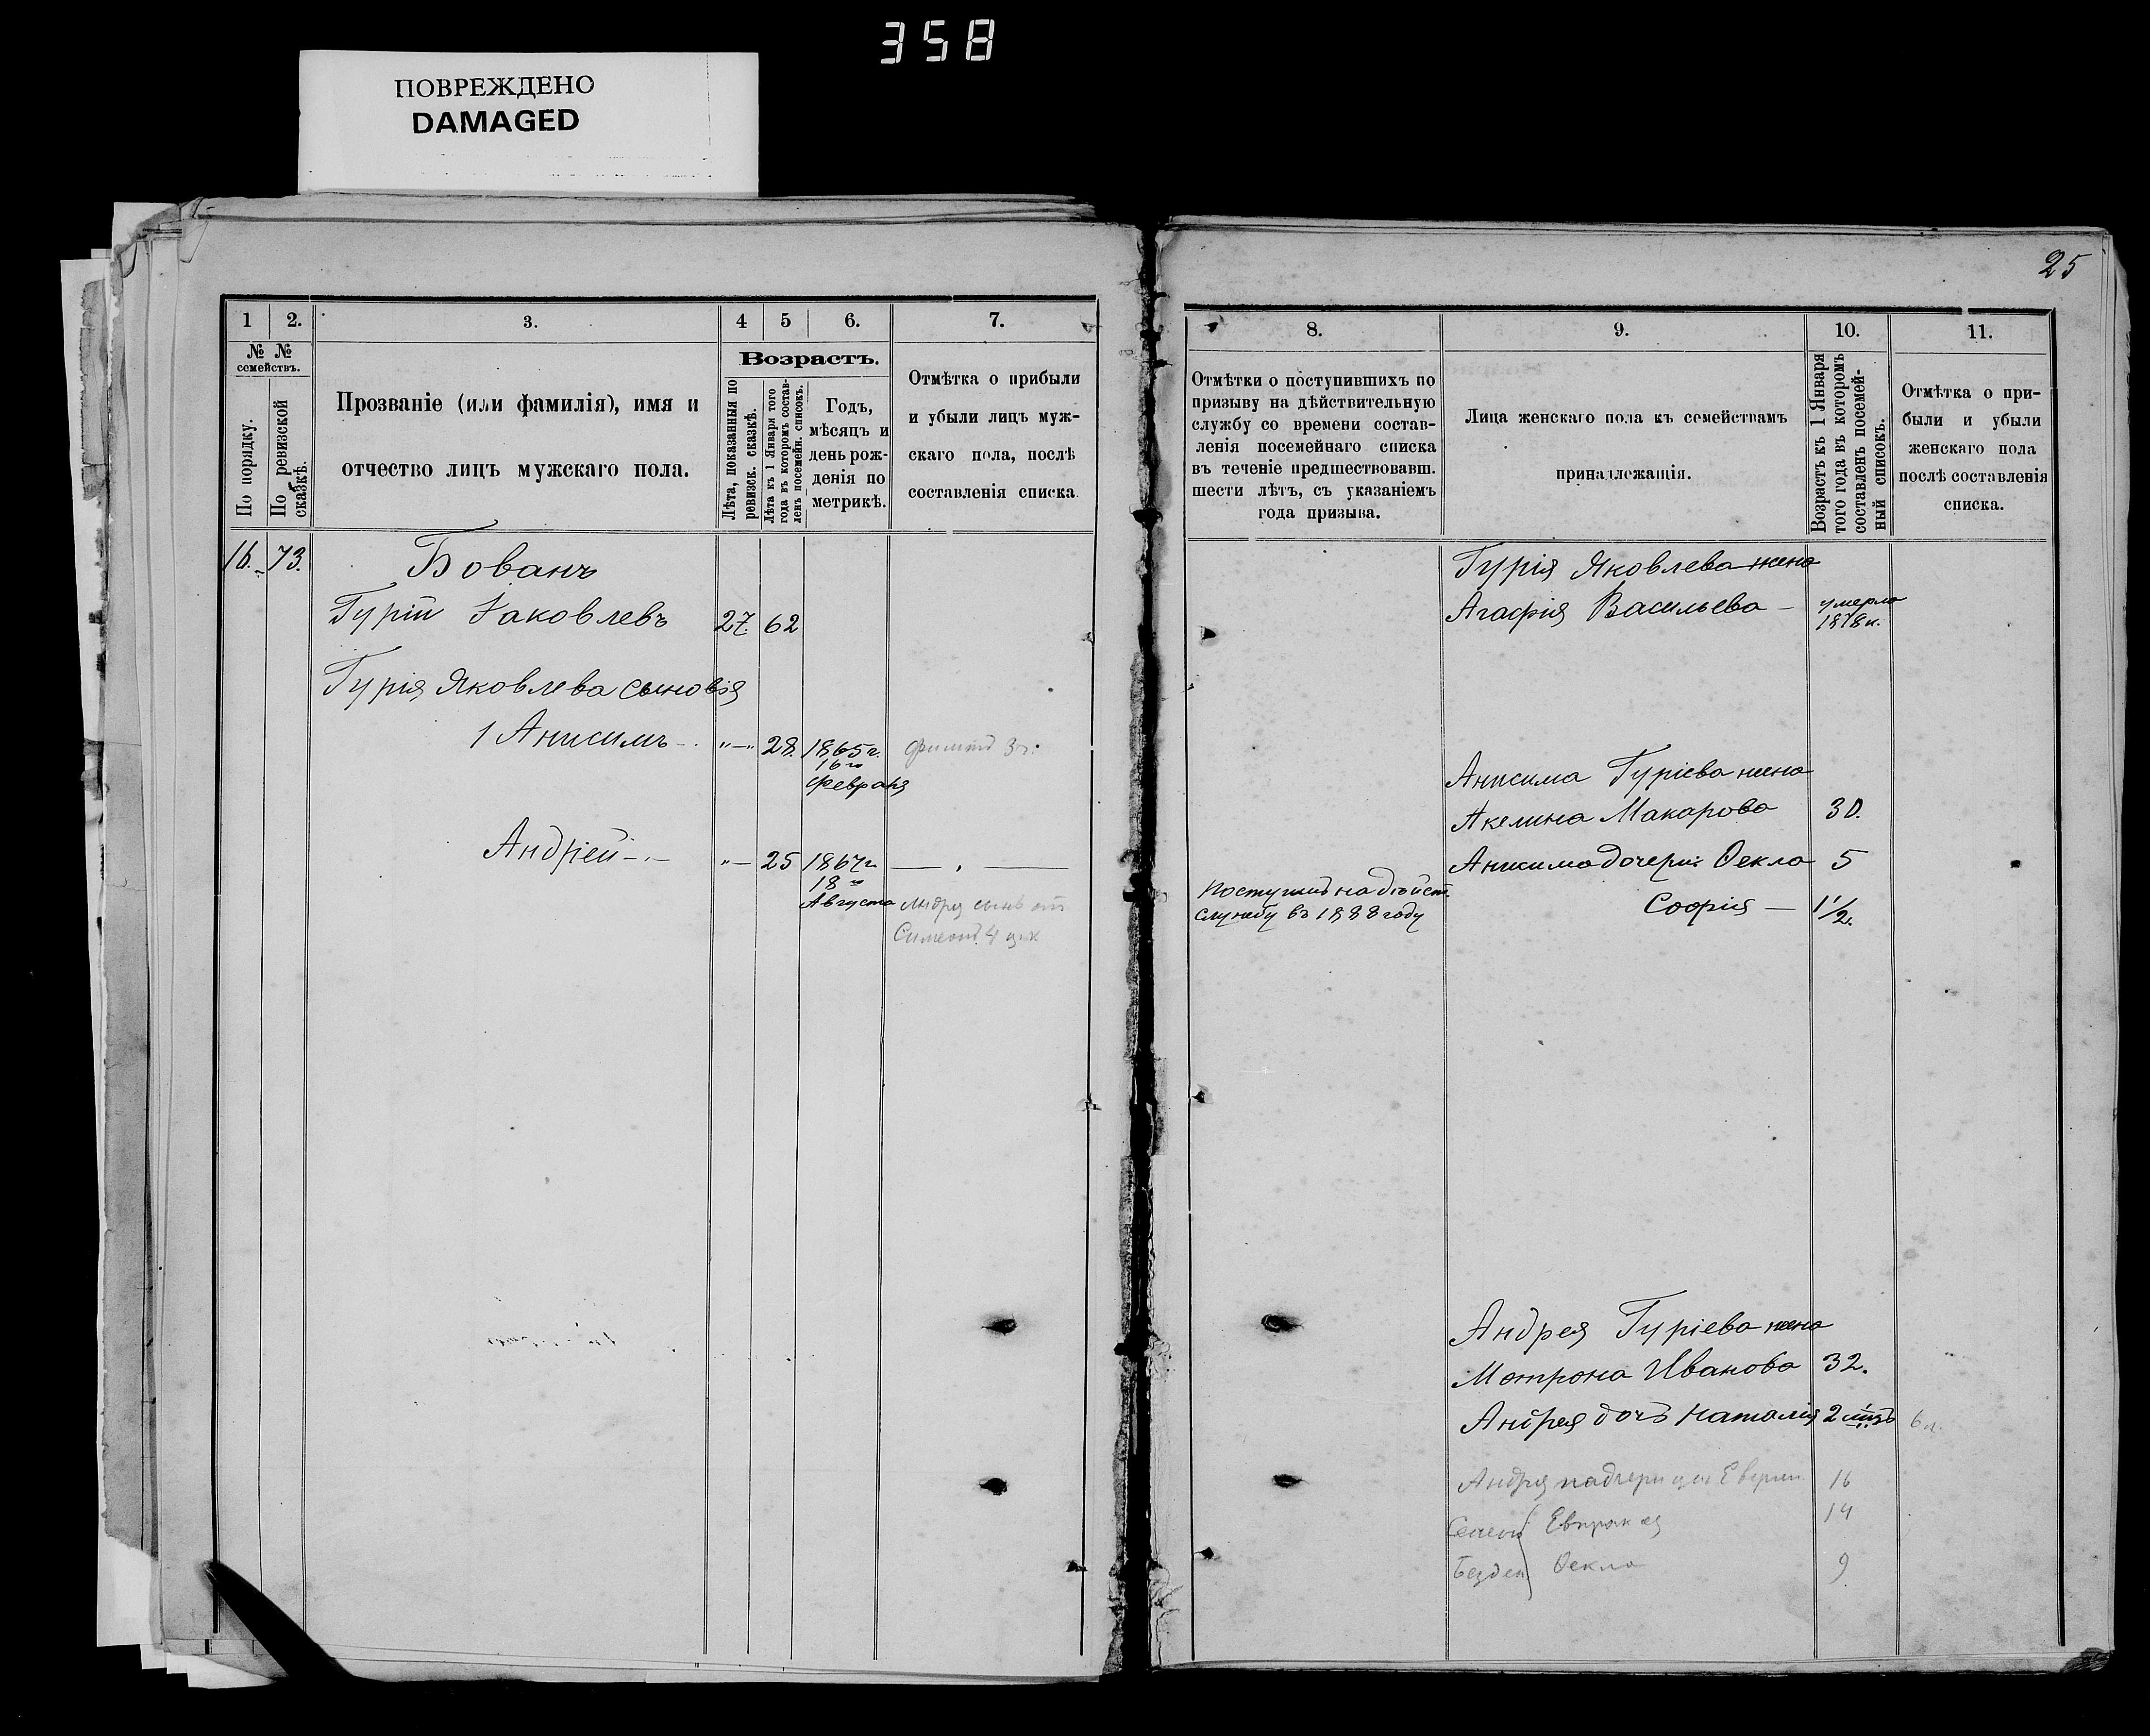 358
ПОВРЕЖДЕНО
DAMAGED
25
1
2.
3.
4
5
6.
7.
№ №
семействъ.
По порядку.
По ревизской
сказкѣ.
Прозваніе (или фамилія), имя и
отчество лицъ мужскаго пола.
Возрастъ.
Лѣта, показанныя по
ревизск. сказкѣ.
Лѣта къ 1 Января того
года въ которомъ состав-
ленъ посемейн. списокъ.
Годъ,
мѣсяцъ и
день рож-
денія по
метрикѣ.
Отмѣтка о прибыли
и убыли лицъ муж-
скаго пола, послѣ
составленія списка.
16. 73.
Бованъ
Гурій Іаковлевъ 27. 62
Гурія Яковлева сыновія
1 Анисимъ - . "—" 28. 1865 г.
16го
Февраля
3 г.
Андрей - . - "— 25 1867 г.
18го
Августа
Андрея сынъ
Симеонъ 4
8.
9.
10.
11.
Отмѣтки о поступившихъ по
призыву на дѣйствительную
службу со времени состав-
ленія посемейнаго списка
въ теченіе предшествовавш.
шести лѣтъ, съ указаніемъ
года призыва.
Лица женскаго пола къ семействамъ
принадлежащія.
Возрастъ къ 1 Января
того года въ которомъ
составленъ посемей-
ный списокъ.
Отмѣтка о при-
были и убыли
женскаго пола
послѣ составленія
списка.
Гурія Яковлева жена
Агафія Васильева — умерла
1878 г.
Анисима Гуріева жена
Акелина Макарова 30.
Анисима дочери: Ѳекла 5
Поступилъ на дѣйст.
службу въ 1888 году
Софія — 1 1/2.
Андрея Гуріева жена
Мотрона Иванова 32.
Андрея дочъ Наталія 2 мѣс. 6 л.
Андрея падчерицы 16
Семен Евпраксія 14
Безден Ѳекла 9